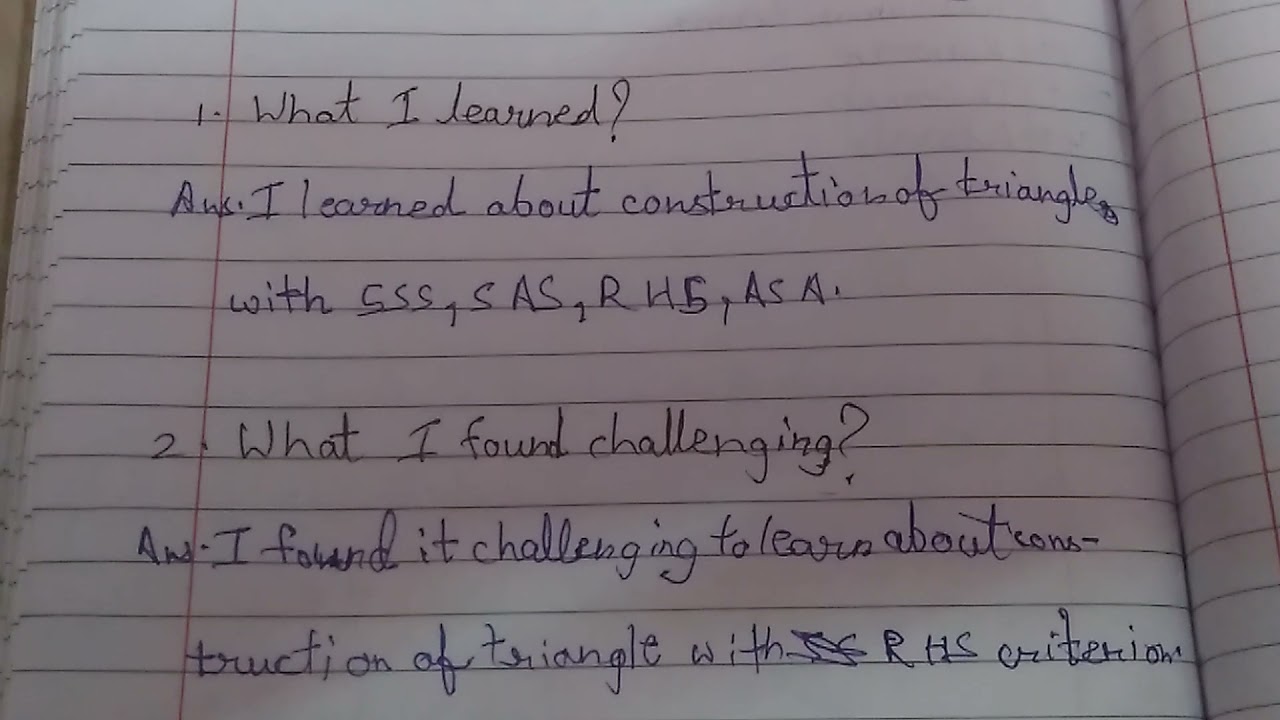 1. What I learned?
Ans. I learned about construction of triangles
with SSS, SAS, RHS, ASA.
2. What I found challenging?
Ans. I found it challenging to learn about cons-
truction of triangle with RHS criterion